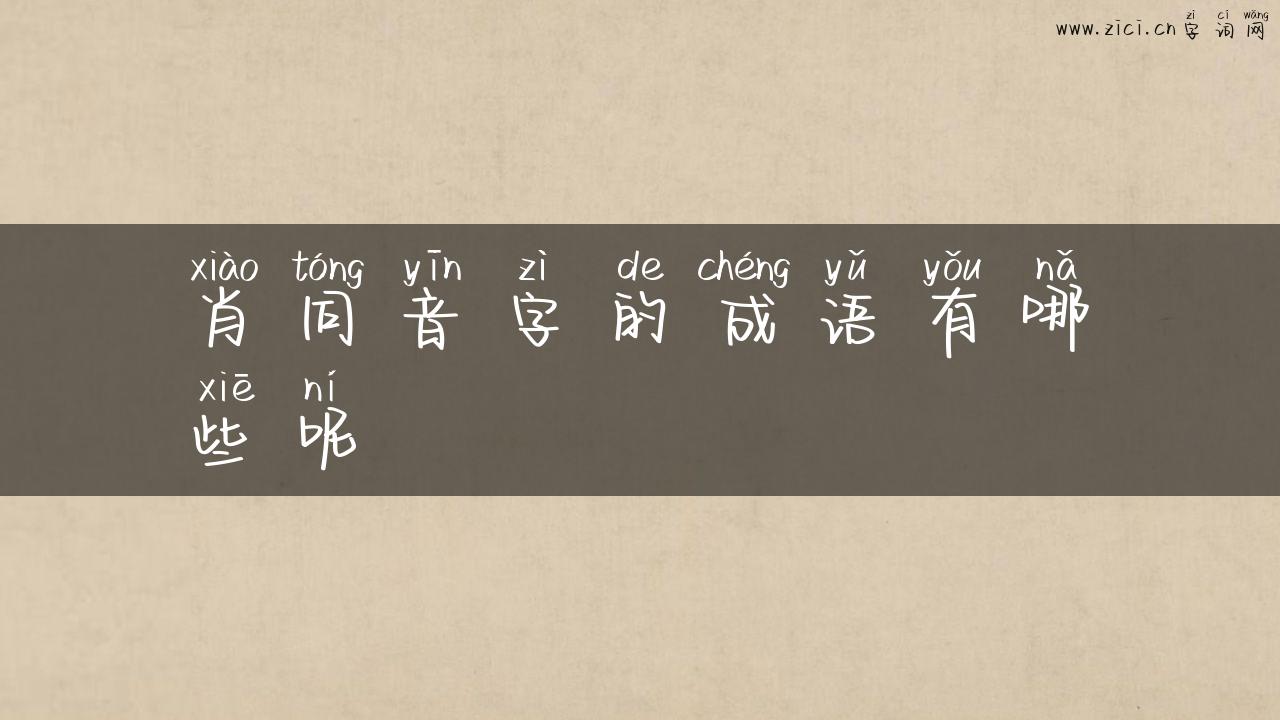 zì cí wǎng
www.zici.cn字词网
xiào tóng yīn zì de chéng yǔ yǒu nǎ
肖同音字的成语有哪
xiē ní
些呢